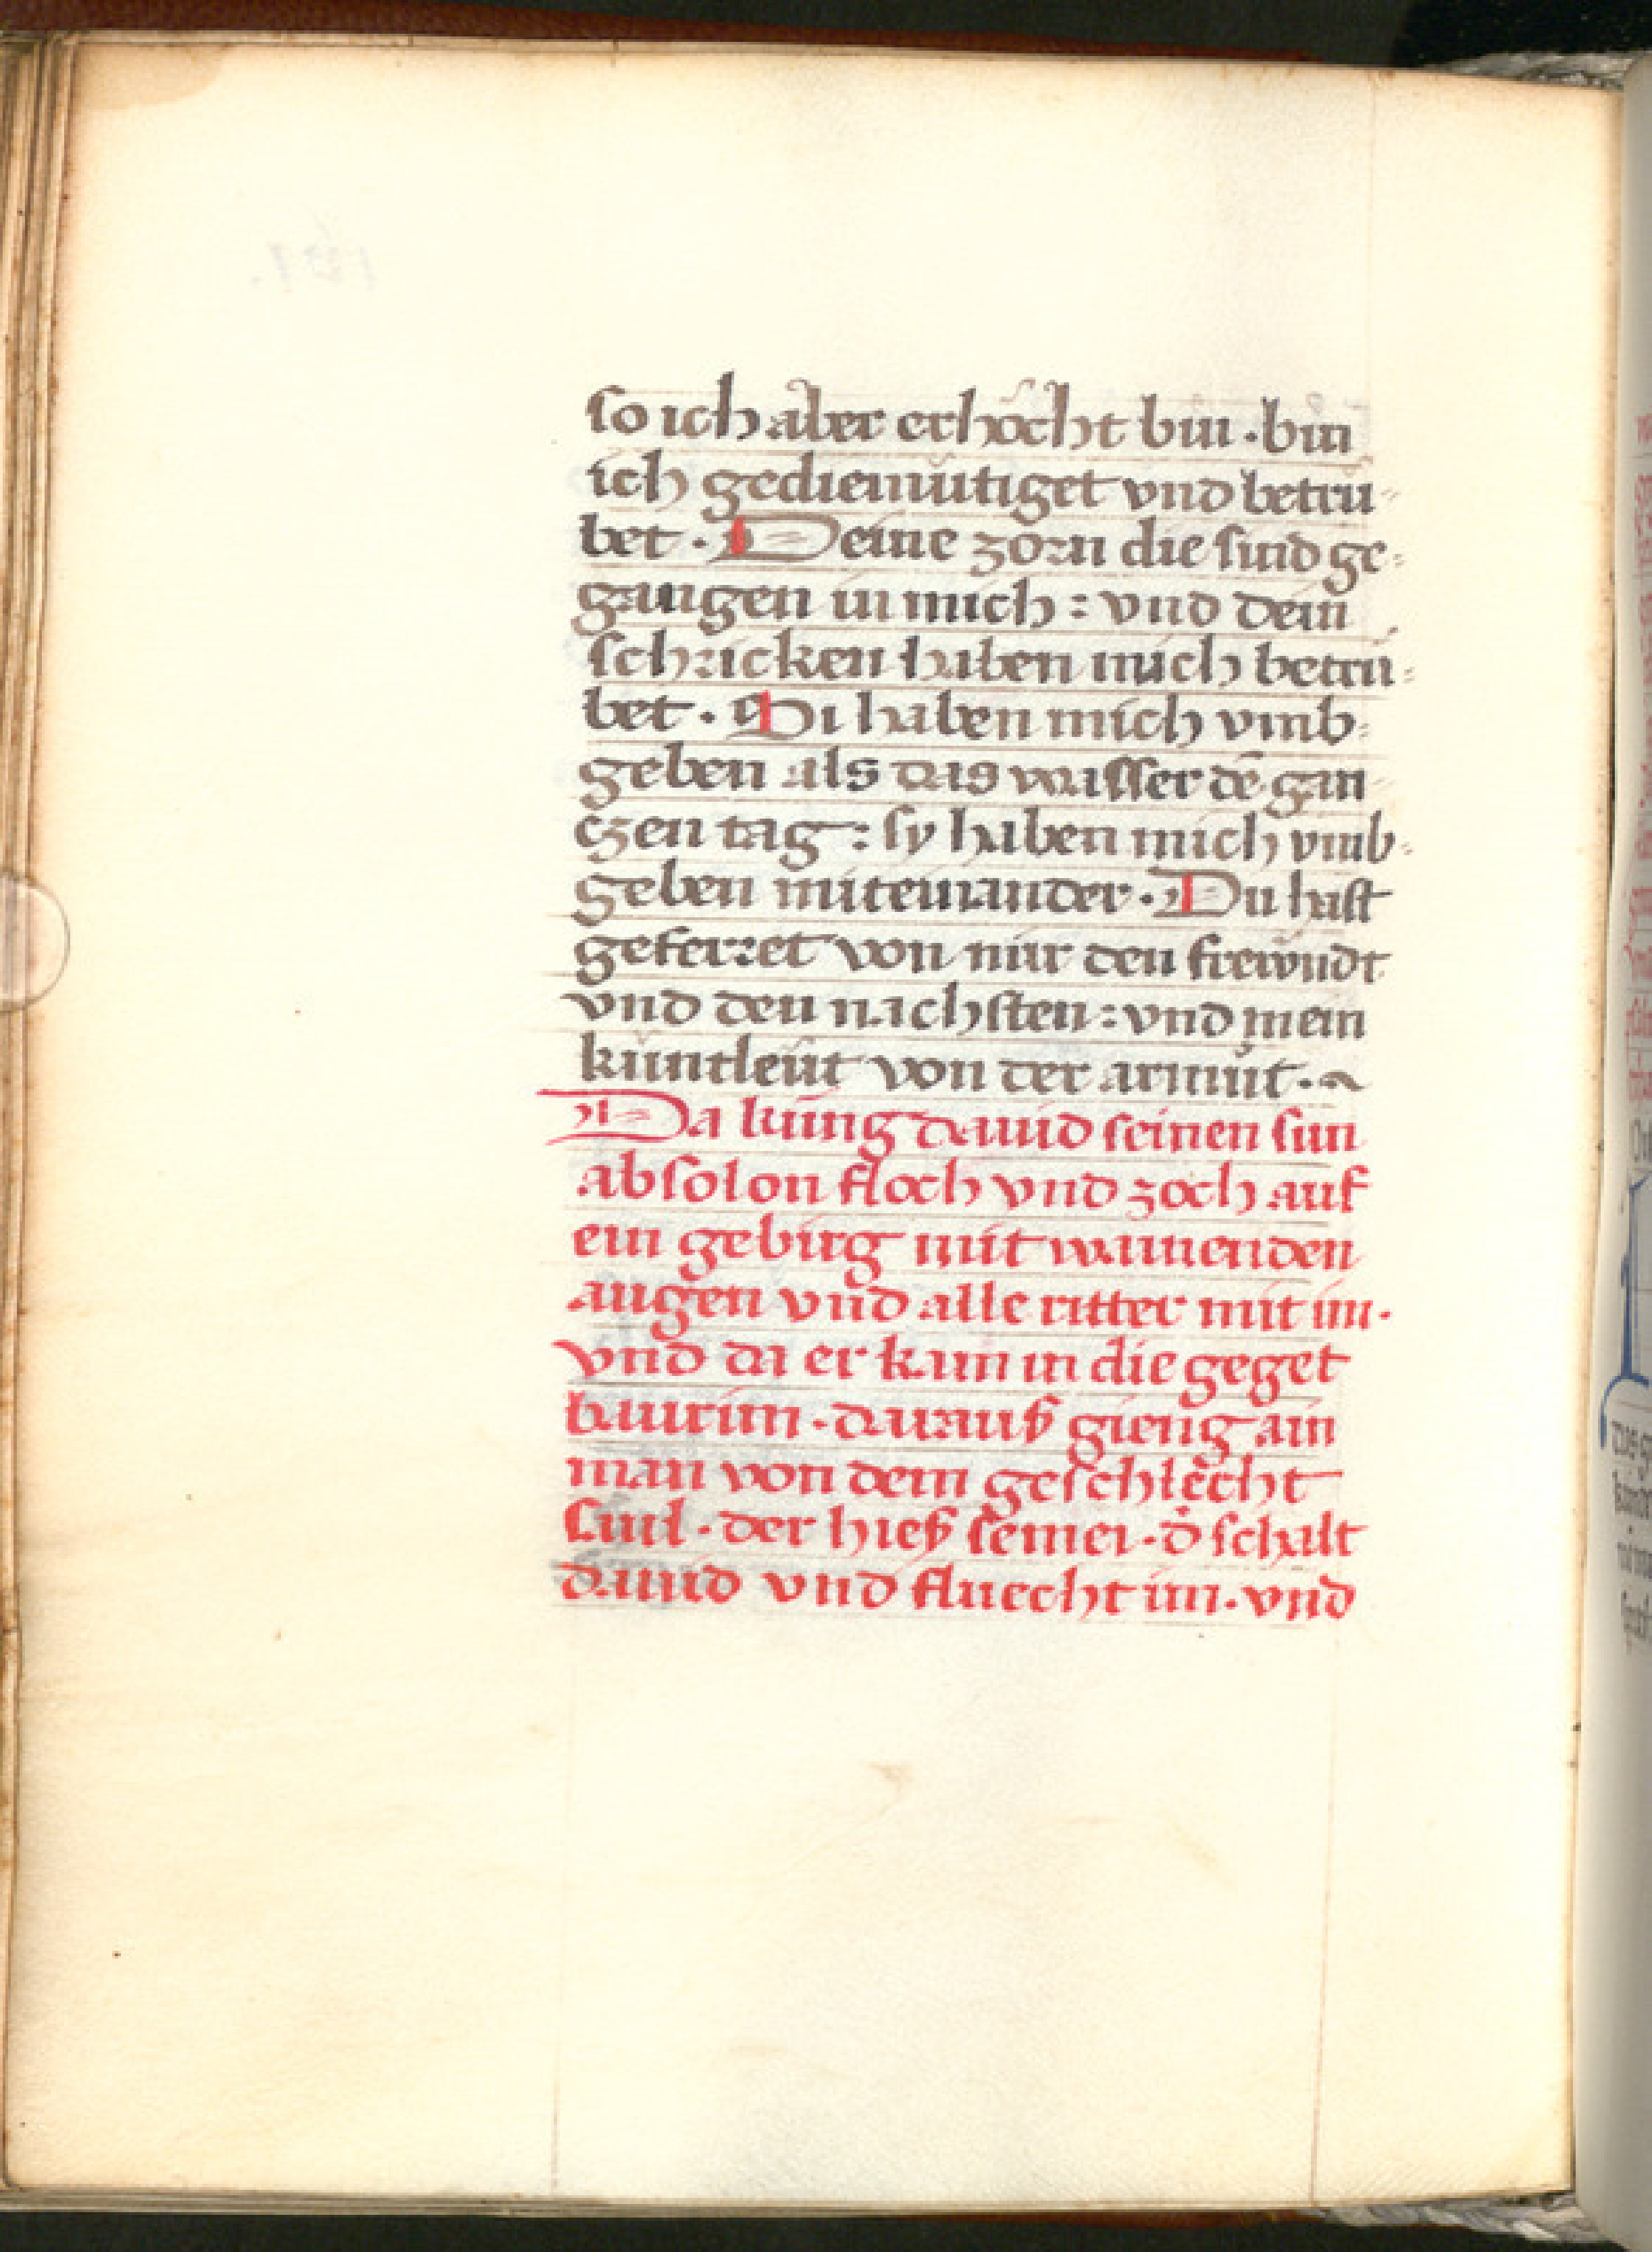 so ich aber erhöcht bin · bin
ich gediemütiget vnd betrü-
bet · Deine zorn die sind ge-
gangen in mich : vnd dein
schricken haben mich betrü-
bet · Si haben mich vmb-
geben als das wasser dē gan-
czen tag : sy haben mich vmb-
geben miteinander · Du hast
geferret von mir den frewndt
vnd den nachsten : vnd mein
küntleüt von der armüt ·
Da küng dauid seinen sun
absolon floch vnd zoch auf
ein gebirg mit wainenden
augen vnd alle ritter mit im ·
vnd da er kam in die geget
baurim · darauß gieng ain
man von dem geschlächt
Saul · der hieß semei · d̛ schalt
dauid vnd fluecht im · vnd